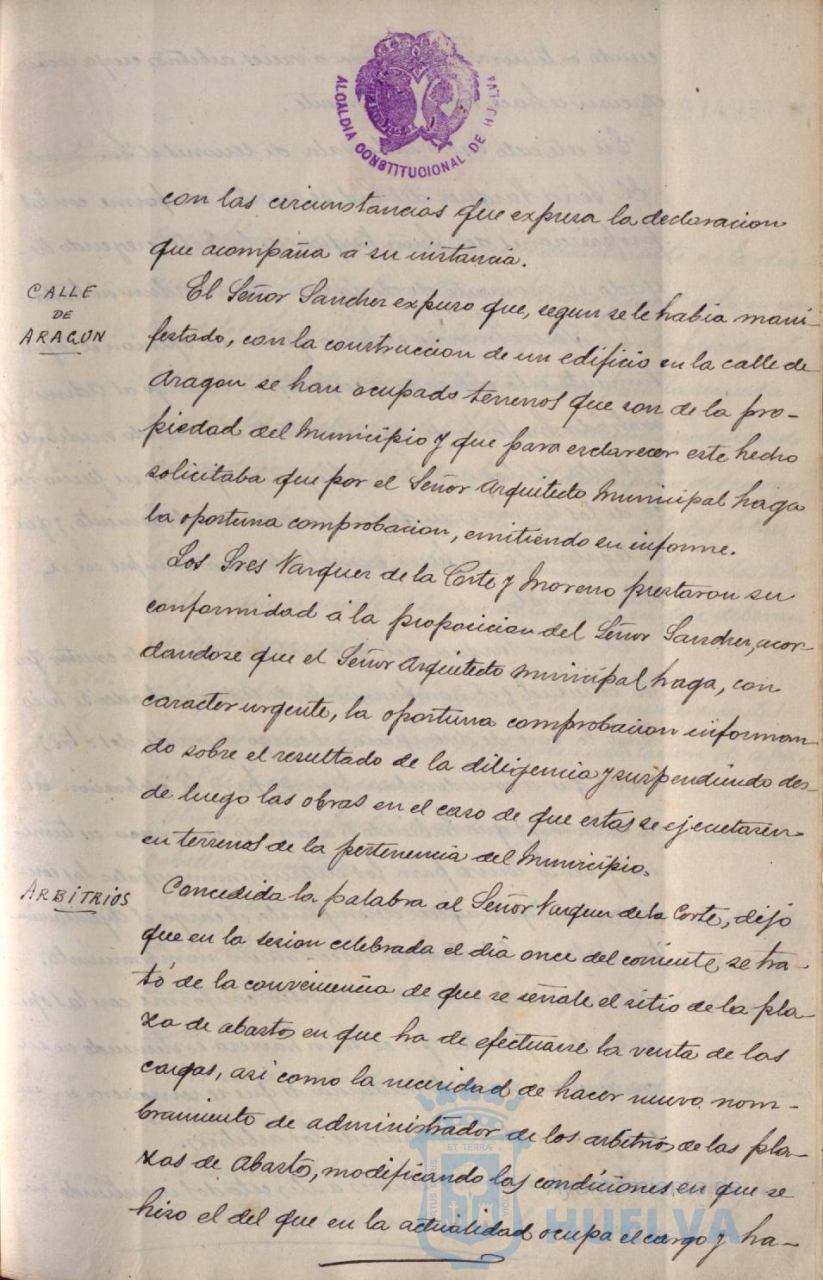 ALCALDÍA CONSTITUCIONAL DE HUELVA
con las circunstancias que expresa la declaracion
que acompaña á su instancia.
CALLE
DE
ARAGON
El Señor Sanchez expuso que, segun se le habia mani-
festado, con la construccion de un edificio en la calle de
Aragon se han ocupado terrenos que son de la pro-
piedad del Municipio y que para esclarecer este hecho
solicitaba que por el Señor Arquitecto Municipal haga
la oportuna comprobacion, emitiendo su informe.
Los Sres Vazquez de la Corte y Moreno prestaron su
conformidad á la proposicion del Señor Sanchez, acor-
dandose que el Señor Arquitecto Municipal haga, con
caracter urgente, la oportuna comprobacion informan-
do sobre el resultado de la diligencia y suspendiendo des-
de luego las obras en el caso de que estas se ejecutaren
en terrenos de la pertenencia del Municipio.
ARBITRIOS
Concedida la palabra al Señor Vazquez de la Corte, dijo
que en la sesion celebrada el dia once del corriente, se tra-
tó de la conveniencia de que se señale el sitio de la pla-
za de abastos en que ha de efectuarse la venta de las
cargas, asi como la necesidad de hacer nuevo nom-
bramiento de administrador de los arbitrios de las pla-
zas de Abasto, modificando las condiciones en que se
hizo el del que en la actualidad ocupa el cargo y ha-
HUELVA